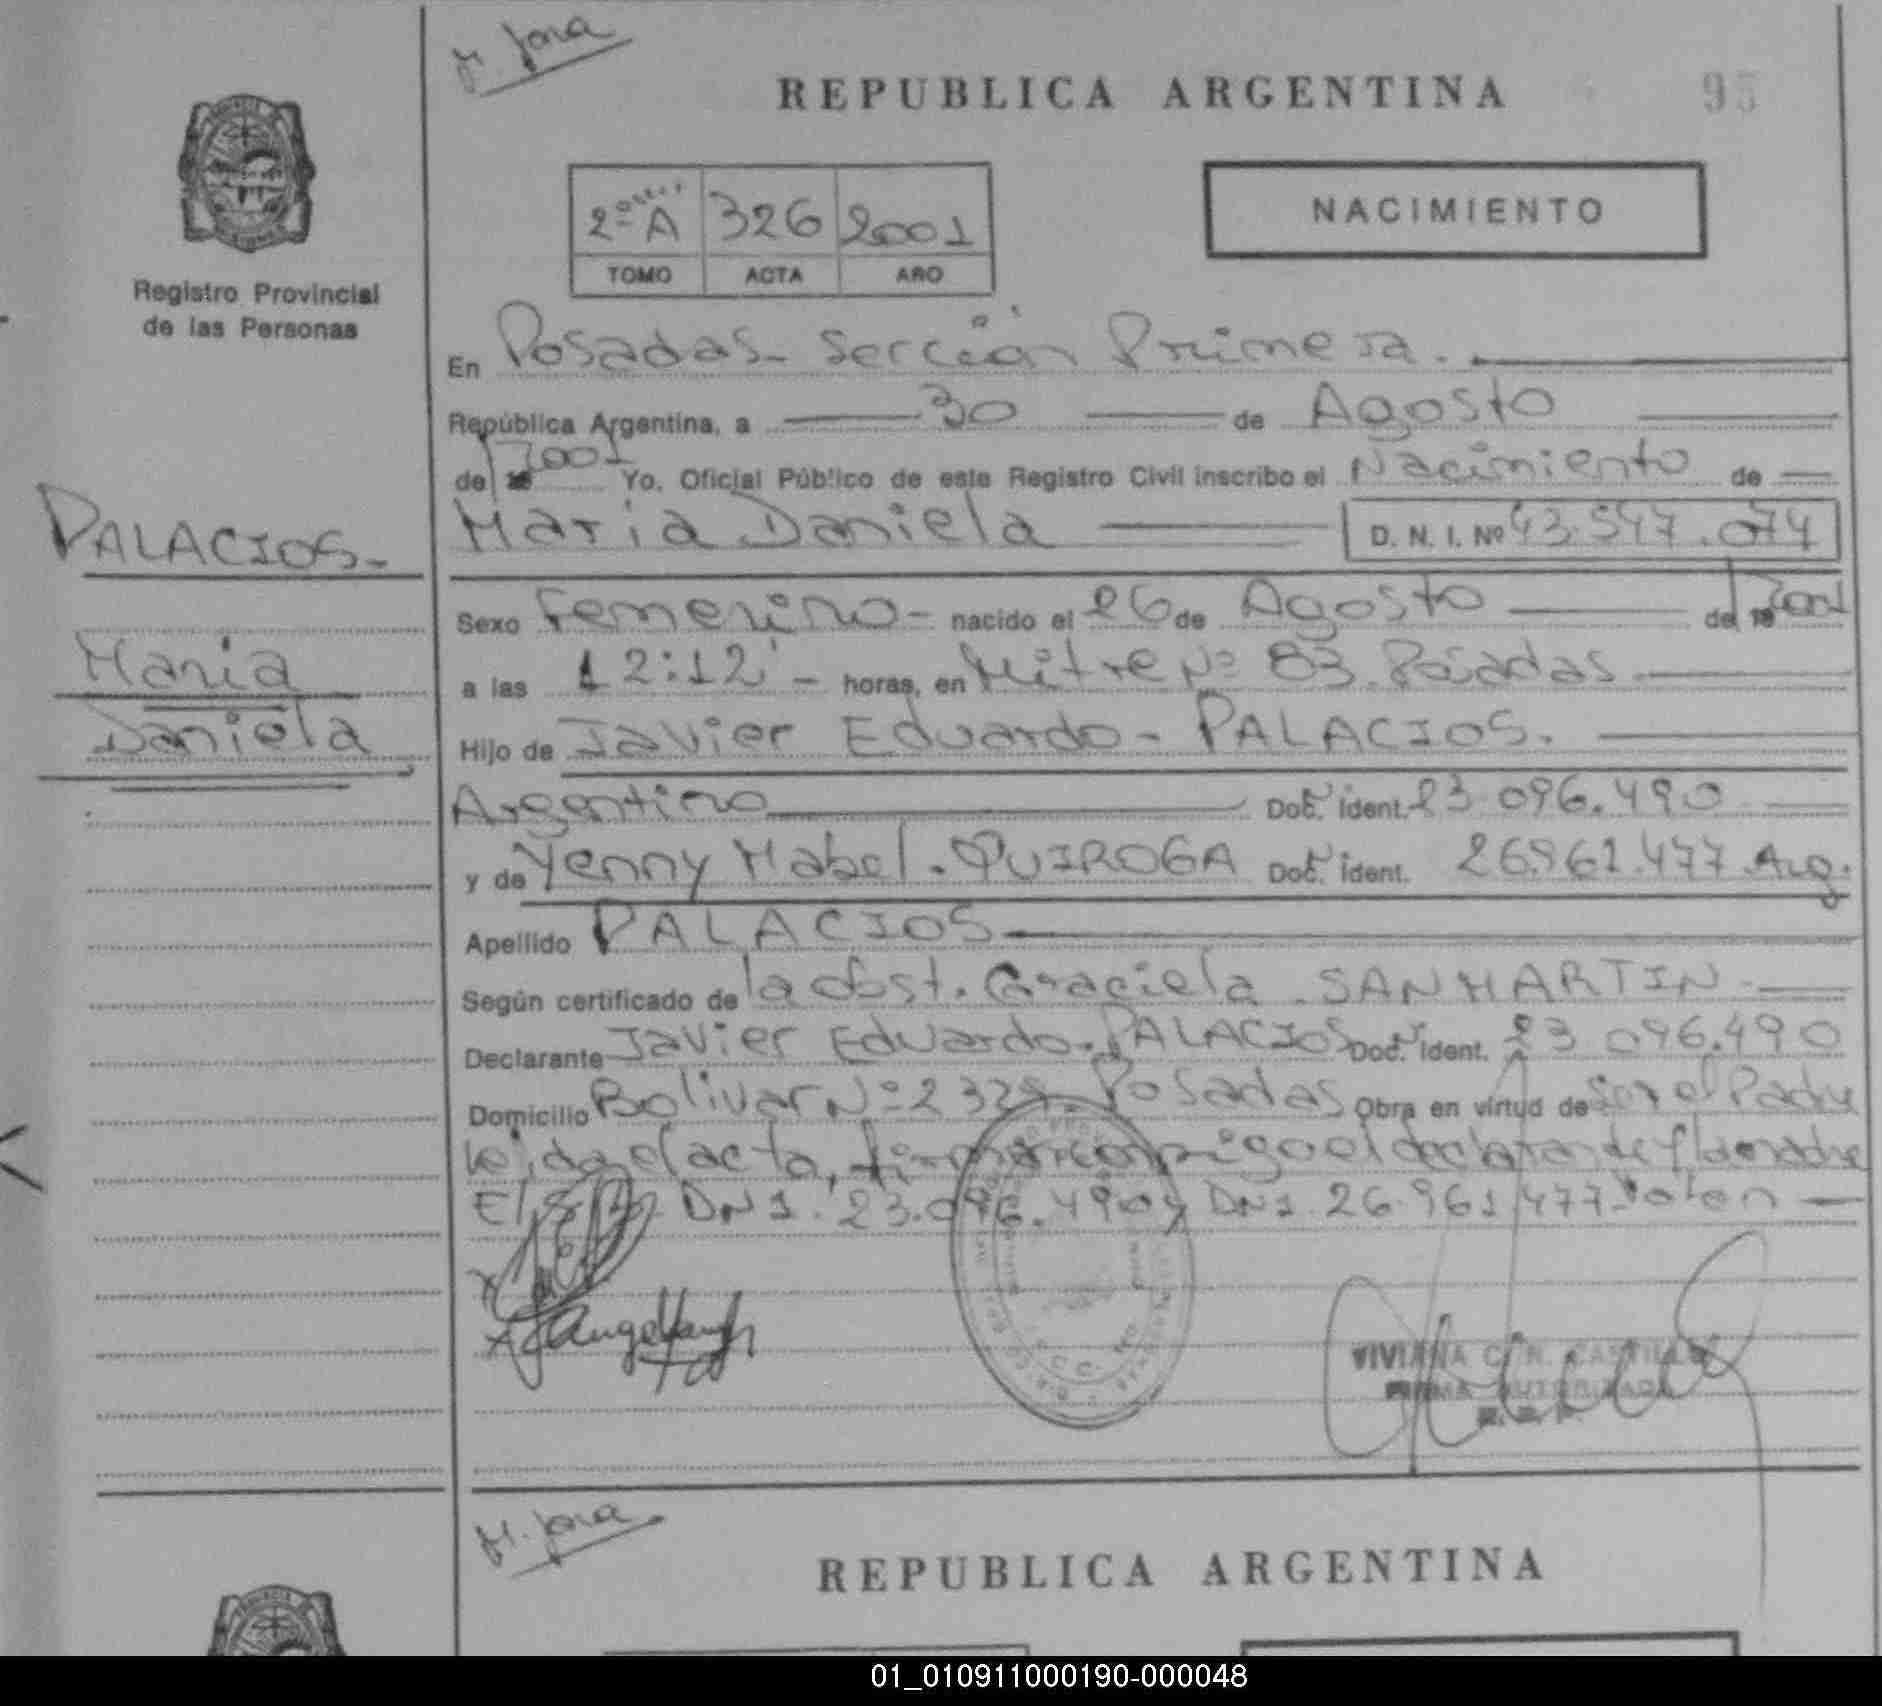 M. Jora
REPUBLICA ARGENTINA
95
2º A 326 2001
TOMO ACTA AÑO
NACIMIENTO
Registro Provincial
de las Personas
En Posadas - Sección Primera.
República Argentina, a 30 de Agosto
de 2001 Yo, Oficial Público de este Registro Civil inscribo el Nacimiento de
PALACIOS-
Maria
Daniela
Maria Daniela D. N. I. Nº 43.547.074
Sexo Femenino - nacido el 26 de Agosto de 2001
a las 12:12' - horas, en Mitre Nº 83. Posadas
Hijo de Javier Eduardo - PALACIOS.
Argentino Doc. Ident. 23.096.490
y de Yenny Mabel. QUIROGA Doc. Ident. 26.961.477 Arg.
Apellido PALACIOS
Según certificado de la Obst. Graciela SANMARTIN
Declarante Javier Eduardo. PALACIOS Doc. Ident. 23.096.490
Domicilio Bolivar Nº 2328. Posadas Obra en virtud de ser el Padre
leida el acta, firman conmigo el declarante y la madre
DNI. 23.096.490 y DNI. 26.961.477
VIVIANA C. R. CASTILLO
FIRMA AUTORIZADA
M. Jora
REPUBLICA ARGENTINA
01_010911000190-000048